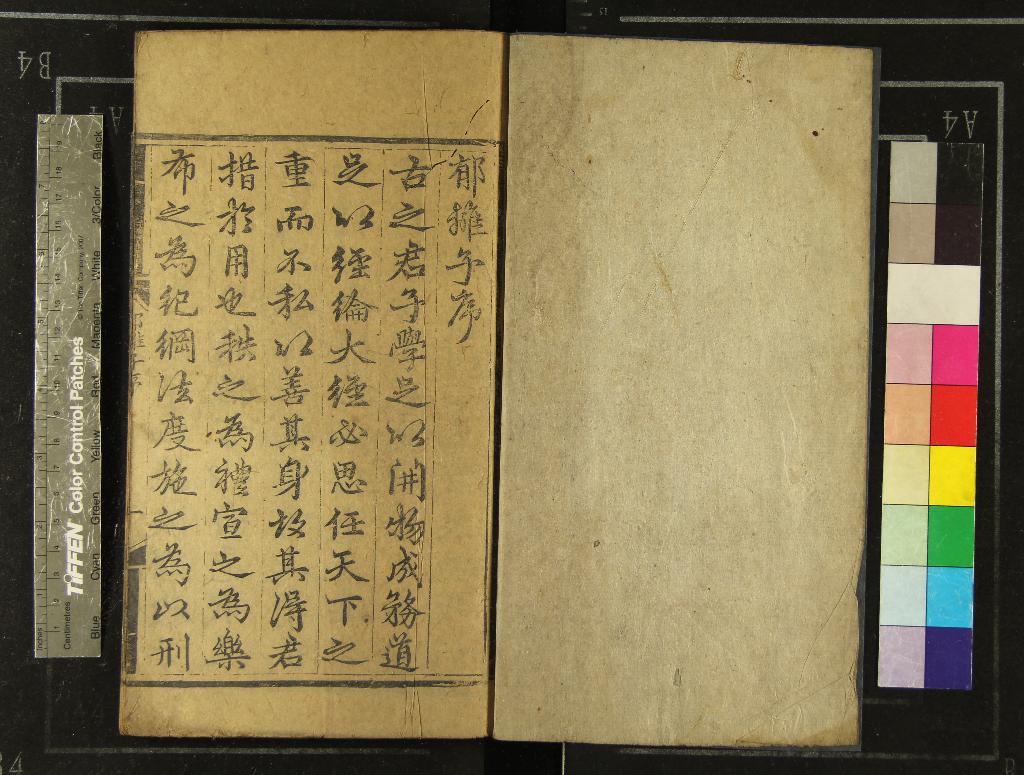 郁離子序
古之君子學足以開物成務道
足以經綸大經必思任天下之
重而不私以善其身故其得君
措於用也秩之為禮宣之為樂
布之為紀綱法度施之為以刑
B4
A4
A4
TIFFEN Color Control Patches
Blue Cyan Green Yellow Red Magenta White 3/Color Black
Inches
Centimetres